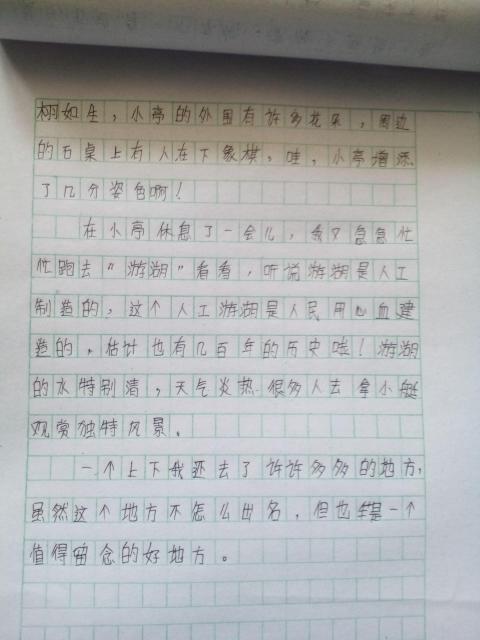 栩如生，小亭的外围有许多花朵，周边
的石桌上有人在下象棋，哇，小亭增添
了几分姿色啊！
在小亭休息了一会儿，我又急急忙
忙跑去“游湖”看看，听说游湖是人工
制造的，这个人工游湖是人民用心血建
造的，估计也有几百年的历史哇！游湖
的水特别清，天气炎热很多人去拿小艇
观赏独特风景。
一个上下我还去了许许多多的地方，
虽然这个地方不怎么出名，但也算是一个
值得留念的好地方。